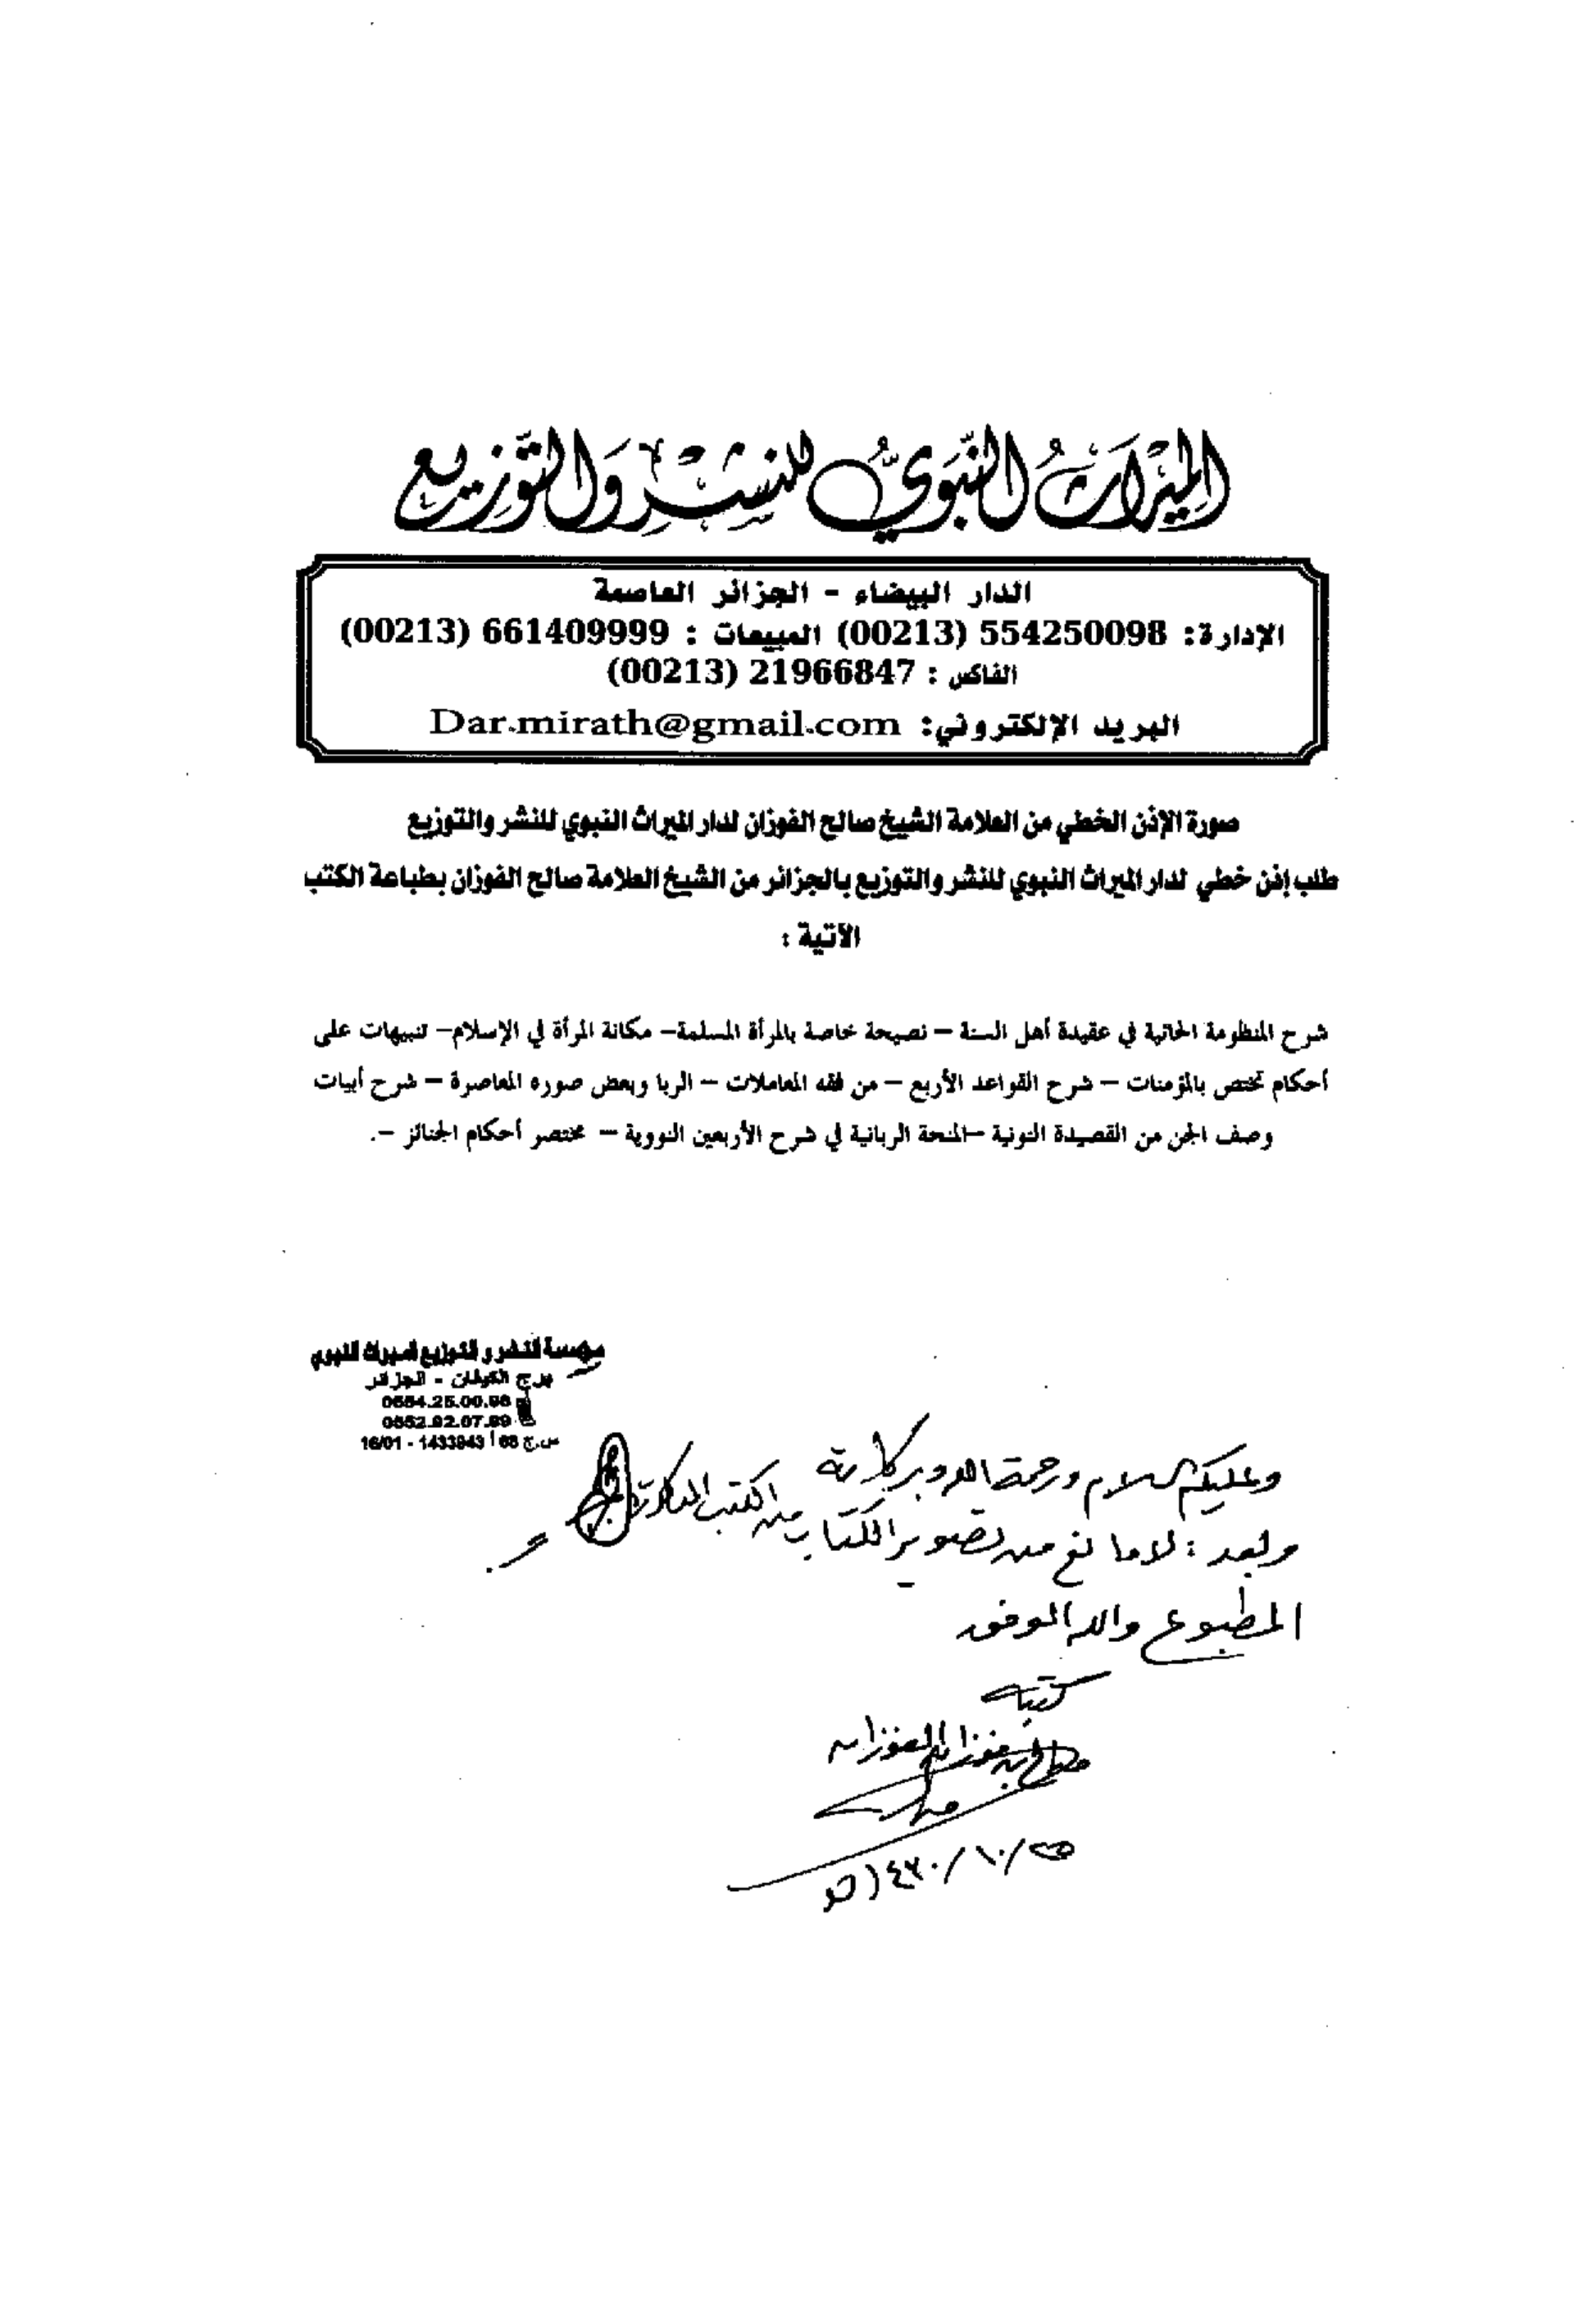 الميراث النبوي للنشر والتوزيع
الدار البيضاء - الجزائر العاصمة
الإدارة: 554250098 (00213) المبيعات : 661409999 (00213)
الفاكس : 21966847 (00213)
البريد الإلكتروني: Dar.mirath@gmail.com
صورة الإذن الخطي من العلامة الشيخ صالح الفوزان لدار الميراث النبوي للنشر والتوزيع
طلب إذن خطي لدار الميراث النبوي للنشر والتوزيع بالجزائر من الشيخ العلامة صالح الفوزان بطباعة الكتب
الآتية :
شرح المنظومة الحائية في عقيدة أهل السنة – نصيحة خاصة بالمرأة المسلمة– مكانة المرأة في الإسلام– تنبيهات على
أحكام تختص بالمؤمنات – شرح القواعد الأربع – من فقه المعاملات – الربا وبعض صوره المعاصرة – شرح أبيات
وصف الجن من القصيدة النونية –المنحة الربانية في شرح الأربعين النووية – مختصر أحكام الجنائز –.
مؤسسة النشر و التوزيع الميراث النبوي
برج الكيفان - الجزائر
وعليكم السلام ورحمة الله وبركاته
وبعد : لا مانع من تصوير الكتاب من الكتب المذكورة
المطبوع والله الموفق
كتبه
صالح بن فوزان الفوزان